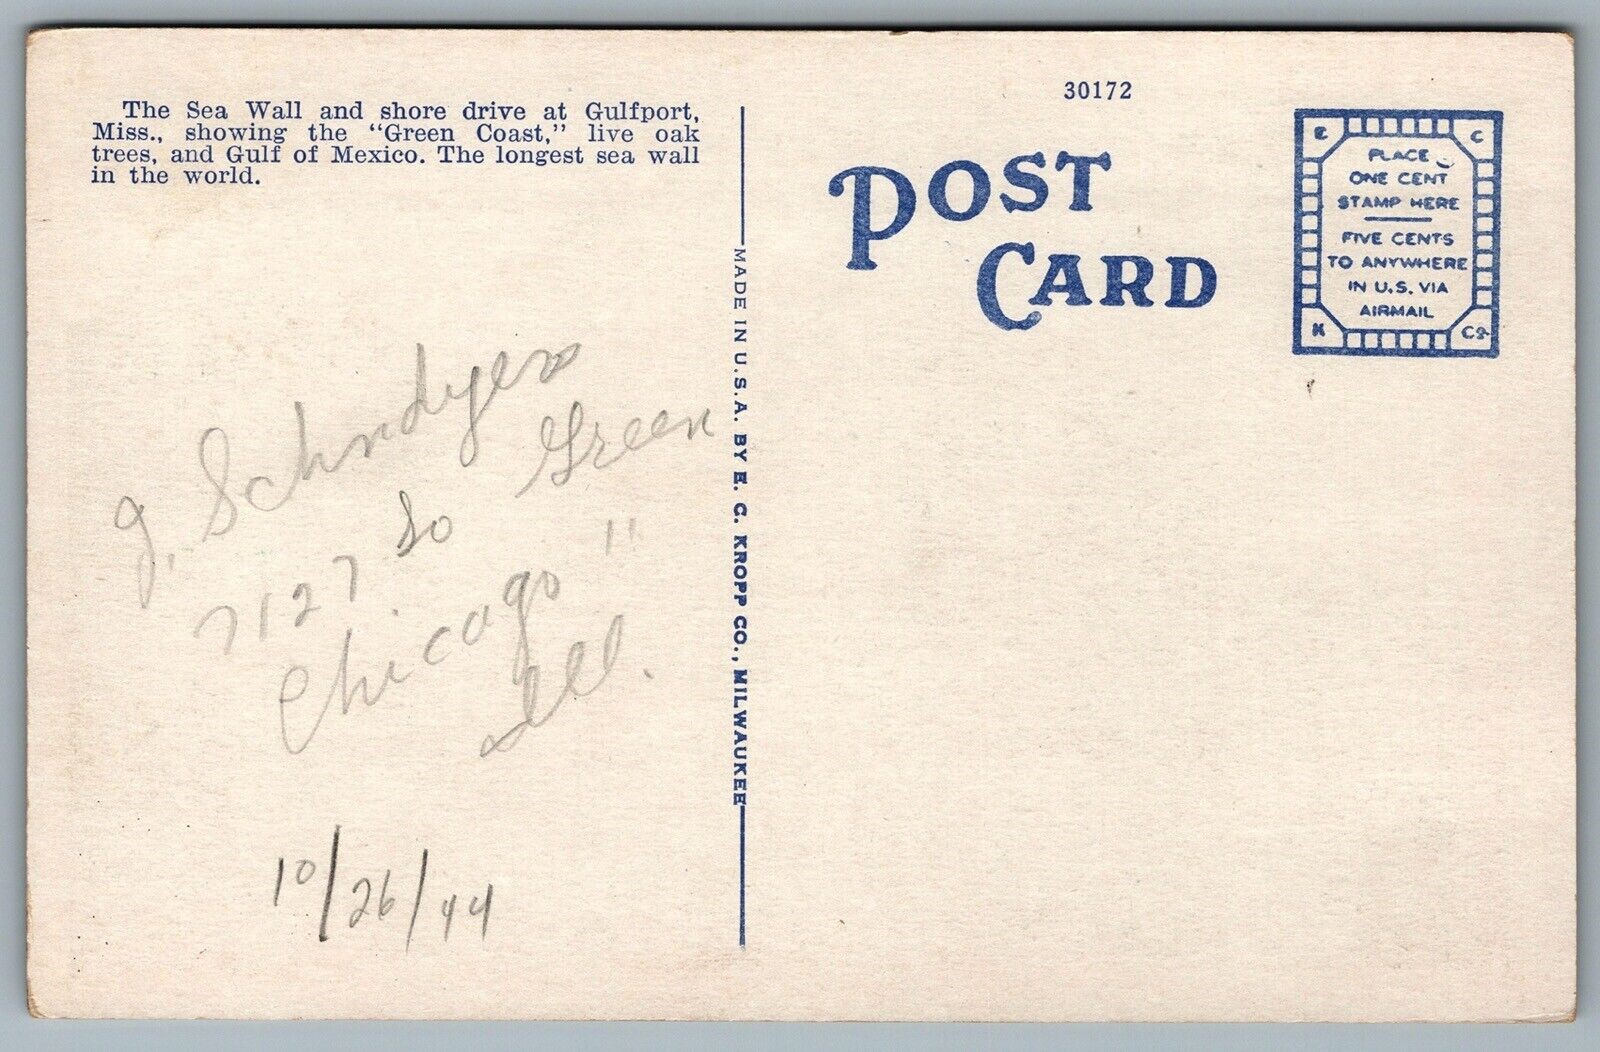 The Sea Wall and shore drive at Gulfport,
Miss., showing the "Green Coast," live oak
trees, and Gulf of Mexico. The longest sea wall
in the world.
J. Schndyers
7127 So Green
Chicago "
Ill.
10/26/44
MADE IN U.S.A. BY E. C. KROPP CO., MILWAUKEE
30172
POST
CARD
E C
PLACE
ONE CENT
STAMP HERE
FIVE CENTS
TO ANYWHERE
IN U.S. VIA
AIRMAIL
K Co